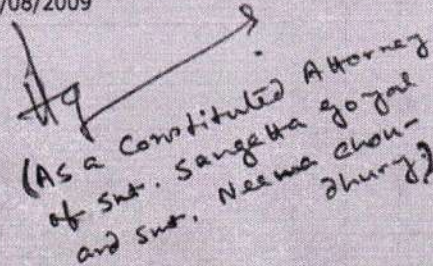 /08/2009
(As a Constituted Attorney
of Smt. Sangeetta Goyal
and Smt. Neema Chou-
dhury)